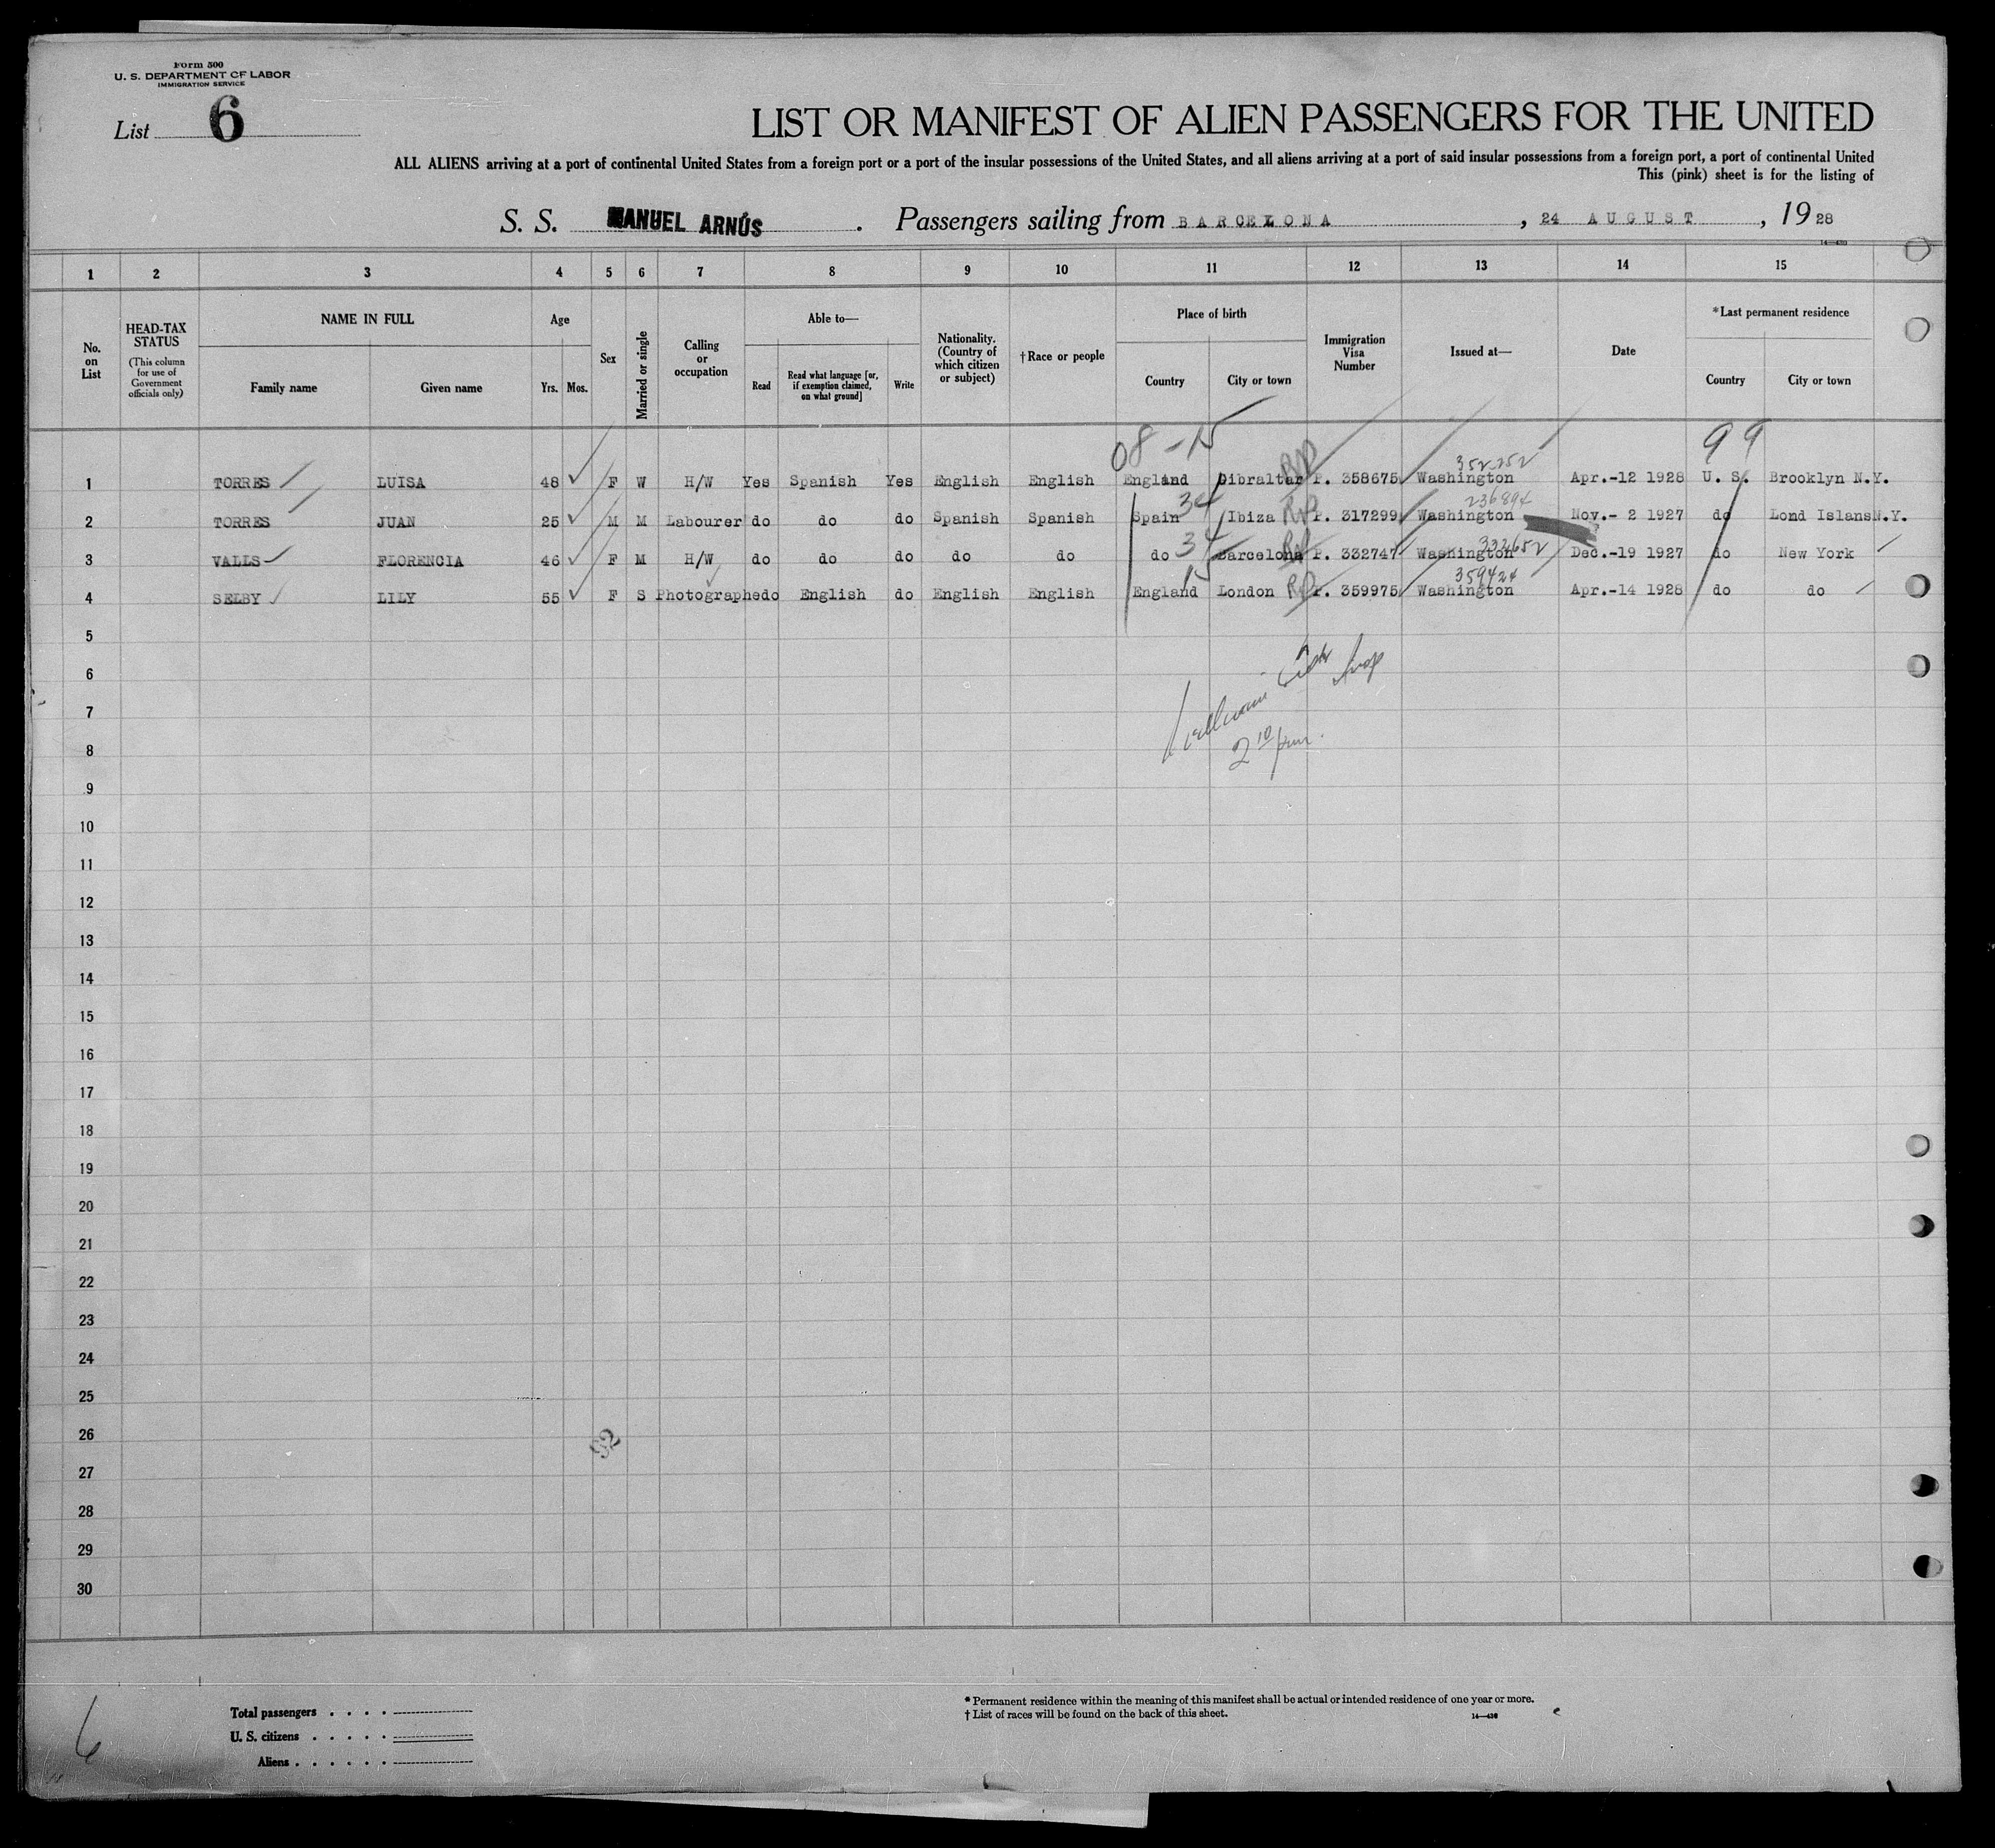 Form 500
U. S. DEPARTMENT OF LABOR
IMMIGRATION SERVICE
List 6
LIST OR MANIFEST OF ALIEN PASSENGERS FOR THE UNITED
ALL ALIENS arriving at a port of continental United States from a foreign port or a port of the insular possessions of the United States, and all aliens arriving at a port of said insular possessions from a foreign port, a port of continental United
This (pink) sheet is for the listing of
S. S. MANUEL ARNÚS. Passengers sailing from BARCELONA, 24 AUGUST, 1928
14—430
1 2 3 4 5 6 7 8 9 10 11 12 13 14 15
No. on List
HEAD-TAX STATUS
(This column for use of Government officials only)
NAME IN FULL
Family name Given name
Age
Yrs. Mos.
Sex
Married or single
Calling or occupation
Able to—
Read
Read what language [or, if exemption claimed, on what ground]
Write
Nationality. (Country of which citizen or subject)
†Race or people
Place of birth
Country City or town
Immigration Visa Number
Issued at—
Date
*Last permanent residence
Country City or town
08-15 99
352252
1 TORRES LUISA 48 F W H/W Yes Spanish Yes English English England Gibraltar P. 358675 Washington Apr.-12 1928 U. S. Brooklyn N.Y.
34 236894
2 TORRES JUAN 25 M M Labourer do do do Spanish Spanish Spain Ibiza P. 317299 Washington Nov.- 2 1927 do Lond IslansN.Y.
34 332652
3 VALLS FLORENCIA 46 F M H/W do do do do do do Barcelona P. 332747 Washington Dec.-19 1927 do New York
15 359424
4 SELBY LILY 55 F S Photographedo English do English English England London RP P. 359975 Washington Apr.-14 1928 do do
5
6
7
8
2 10 pm.
9
10
11
12
13
14
15
16
17
18
19
20
21
22
23
24
25
26
27
28
29
30
6
Total passengers
U. S. citizens
Aliens
* Permanent residence within the meaning of this manifest shall be actual or intended residence of one year or more.
† List of races will be found on the back of this sheet.
14—430